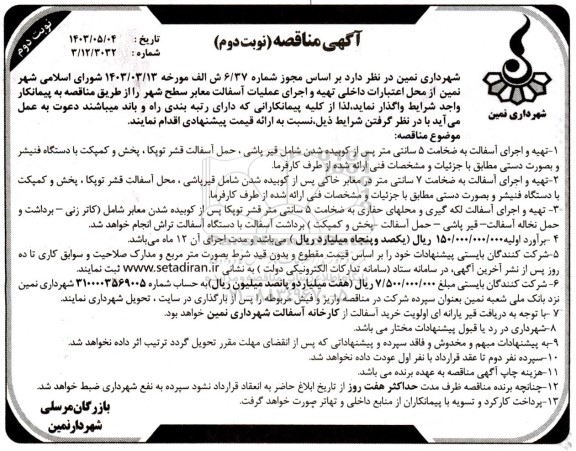 نوبت دوم
آگهی مناقصه (نوبت دوم)
تاریخ : ۱۴۰۳/۰۵/۰۴
شماره : ۳/۱۲/۳۰۳۲
شهرداری نمین
شهرداری نمین در نظر دارد بر اساس مجوز شماره ۶/۳۷ ش الف مورخه ۱۴۰۳/۰۳/۱۳ شورای اسلامی شهر
نمین از محل اعتبارات داخلی تهیه و اجرای عملیات آسفالت معابر سطح شهر را از طریق مناقصه به پیمانکار
واجد شرایط واگذار نماید،لذا از کلیه پیمانکارانی که دارای رتبه بندی راه و باند میباشند دعوت به عمل
می آید با در نظر گرفتن شرایط ذیل،نسبت به ارائه قیمت پیشنهادی اقدام نمایند.
موضوع مناقصه:
۱-تهیه و اجرای آسفالت به ضخامت ۵ سانتی متر پس از کوبیده شدن شامل قیر پاشی ، حمل آسفالت قشر توپکا ، پخش و کمپکت با دستگاه فنیشر
و بصورت دستی مطابق با جزئیات و مشخصات فنی ارائه شده از طرف کارفرما.
۲-تهیه و اجرای آسفالت به ضخامت ۷ سانتی متر در معابر خاکی پس از کوبیده شدن شامل قیرپاشی ، محل آسفالت قشر توپکا ، پخش و کمپکت
با دستگاه فنیشر و بصورت دستی مطابق با جزئیات و مشخصات فنی ارائه شده از طرف کارفرما.
۳- تهیه و اجرای آسفالت لکه گیری و محلهای حفاری به ضخامت ۵ سانتی متر قشر توپکا پس از کوبیده شدن معابر شامل (کاتر زنی – برداشت و
حمل نخاله آسفالت– قیر پاشی – حمل آسفالت –پخش و کمپکت ) برداشت آسفالت با دستگاه آسفالت تراش انجام خواهد شد.
۴ -برآورد اولیه ۱۵۰/۰۰۰/۰۰۰/۰۰۰ ریال (یکصد و پنجاه میلیارد ریال ) می‌باشد و مدت اجرای آن ۱۲ ماه می‌باشد.
۵-شرکت کنندگان بایستی پیشنهادات خود را بر اساس قیمت مقطوع و بدون قید شرط بصورت متر مربع و مدارک صلاحیت و سوابق کاری تا ده
روز پس از نشر آخرین آگهی، در سامانه ستاد (سامانه تدارکات الکترونیکی دولت ) به نشانی www.setadiran.ir ثبت نمایند.
۶-شرکت کنندگان بایستی مبلغ ۷/۵۰۰/۰۰۰/۰۰۰ ریال (هفت میلیارد و پانصد میلیون ریال)به حساب شماره ۳۱۰۰۰۰۳۵۶۹۰۰۵ شهرداری نمین
نزد بانک ملی شعبه نمین بعنوان سپرده شرکت در مناقصه واریز و فیش مربوطه را پس از بارگذاری در سایت ، تحویل شهرداری نمایند.
۷-با توجه به دریافت قیر یارانه ای اولویت خرید آسفالت از کارخانه آسفالت شهرداری نمین خواهد بود.
۸-شهرداری در رد یا قبول پیشنهادات مختار می باشد.
۹-به پیشنهادات مبهم و مخدوش و فاقد سپرده و پیشنهاداتی که پس از انقضای مهلت مقرر تحویل گردد ترتیب اثر داده نخواهد شد.
۱۰-سپرده نفر دوم تا عقد قرارداد با نفر اول عودت داده نخواهد شد.
۱۱-هزینه چاپ آگهی مناقصه به عهده برنده می باشد.
۱۲-چنانچه برنده مناقصه ظرف مدت حداکثر هفت روز از تاریخ ابلاغ حاضر به انعقاد قرارداد نشود سپرده به نفع شهرداری ضبط خواهد شد.
۱۳-پرداخت کارکرد و تسویه با پیمانکاران از منابع داخلی و تهاتر صورت خواهد گرفت.
بازرگان مرسلی
شهردار نمین